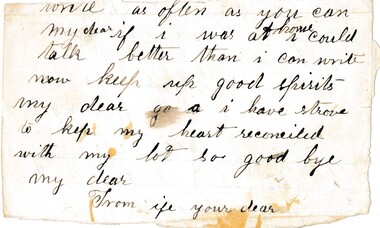 write as often as you can
my dear if i was at home i could
talk better than i can write
now keep up good spirits
my dear go a i have strove
to kep my heart reconciled
with my lot so good bye
my dear
From ife your dear